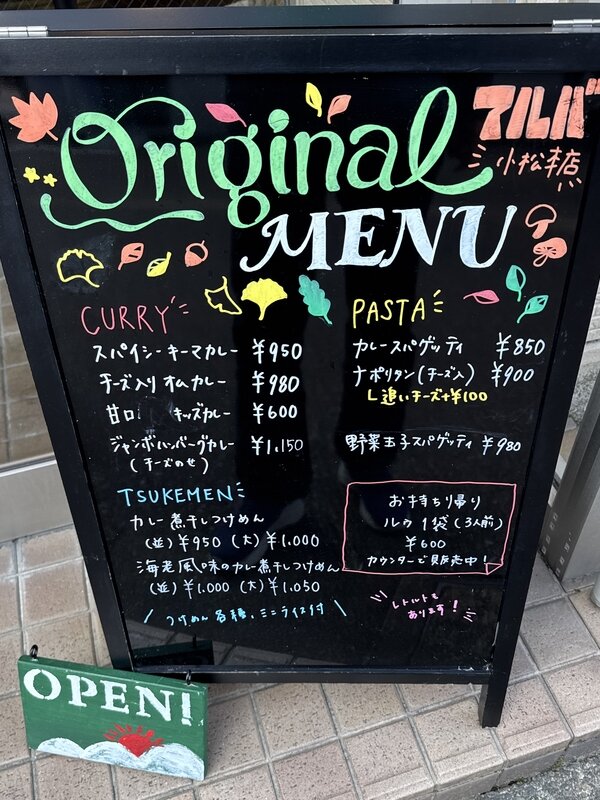 Original
MENU
アルバ
小松本店
CURRY
スパイシーキーマカレー ¥950
チーズ入りオムカレー ¥980
甘口 キッズカレー ¥600
ジャンボハンバーグカレー ¥1,150
(チーズのせ)
TSUKEMEN
カレー煮干しつけめん
(並) ¥950 (大) ¥1,000
海老風味のカレー煮干しつけめん
(並) ¥1,000 (大) ¥1,050
つけめん各種、ミニライス付
PASTA
カレースパゲッティ ¥850
ナポリタン(チーズ入) ¥900
追いチーズ+¥100
野菜玉子スパゲッティ ¥980
お持ち帰り
ルウ 1袋(3人前)
¥600
カウンターで販売中!
レトルトも
あります!
OPEN!